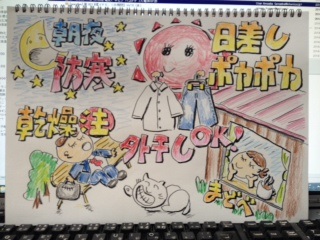 朝夜
防寒
日差し
ポカポカ
乾燥注
外干しOK!
まどべ